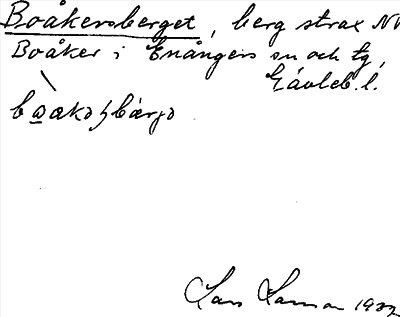 Boåkersberget, berg strax NV
Boåker i Enångers sn och tg,
Gävleb. l.
Lars Larsson